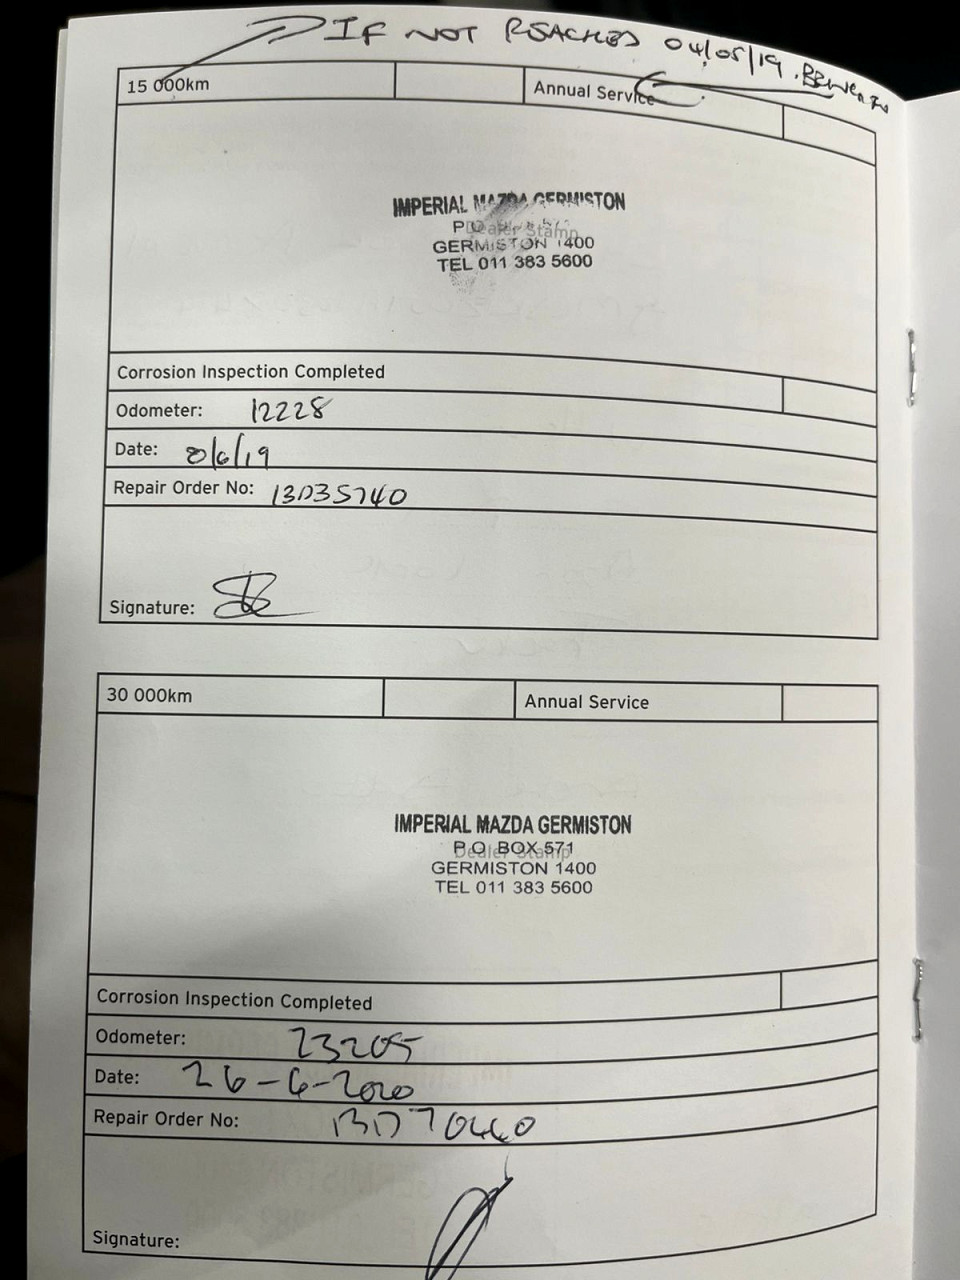 IF NOT REACHED 04/05/19.
15 000km
Annual Service
IMPERIAL MAZDA GERMISTON
Dealer Stamp
GERMISTON 1400
TEL 011 383 5600
Corrosion Inspection Completed
Odometer: 12228
Date: 8/6/19
Repair Order No: 13D35740
Signature:
30 000km
Annual Service
IMPERIAL MAZDA GERMISTON
P.O. BOX 571
Dealer Stamp
GERMISTON 1400
TEL 011 383 5600
Corrosion Inspection Completed
Odometer: 23205
Date: 26-6-2020
Repair Order No:
Signature: